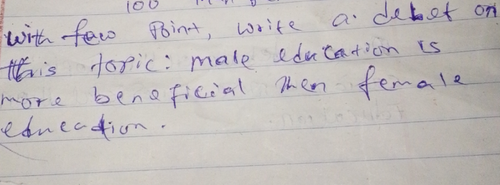 100
With few Point, write a debet on
this topic: male education is
more beneficial then female
education.